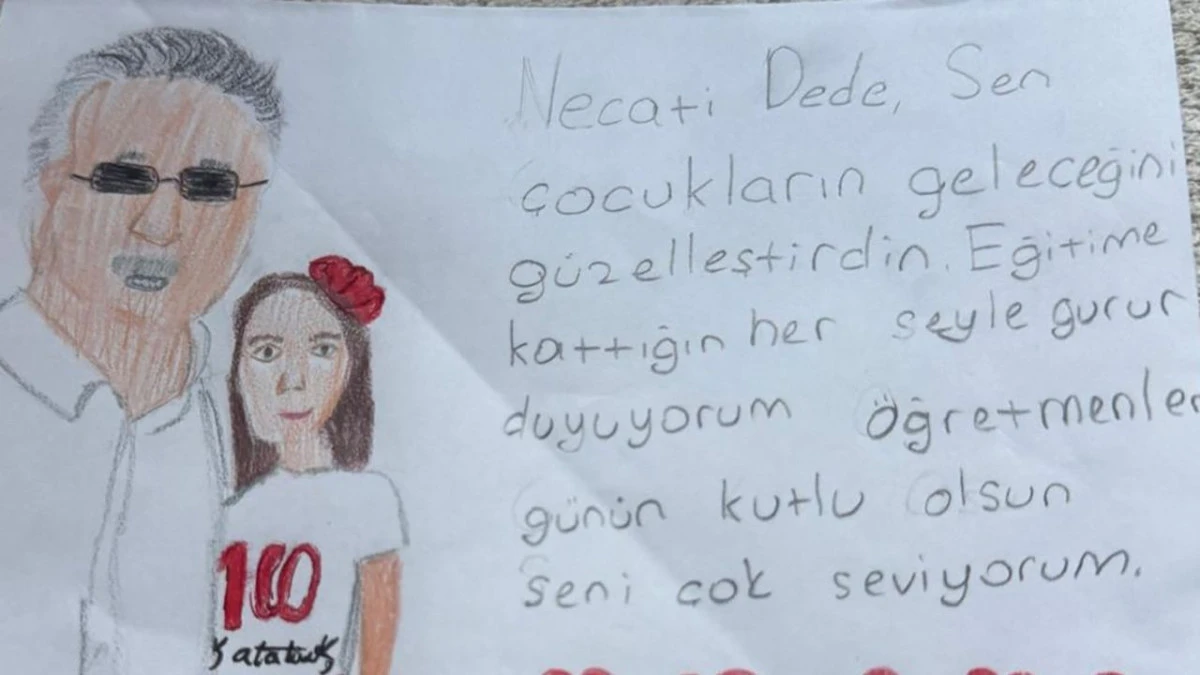 Necati Dede, Sen
çocukların geleceğini
güzelleştirdin. Eğitime
kattığın her şeyle gurur
duyuyorum Öğretmenler
günün kutlu olsun
seni çok seviyorum.
100
K atatürk